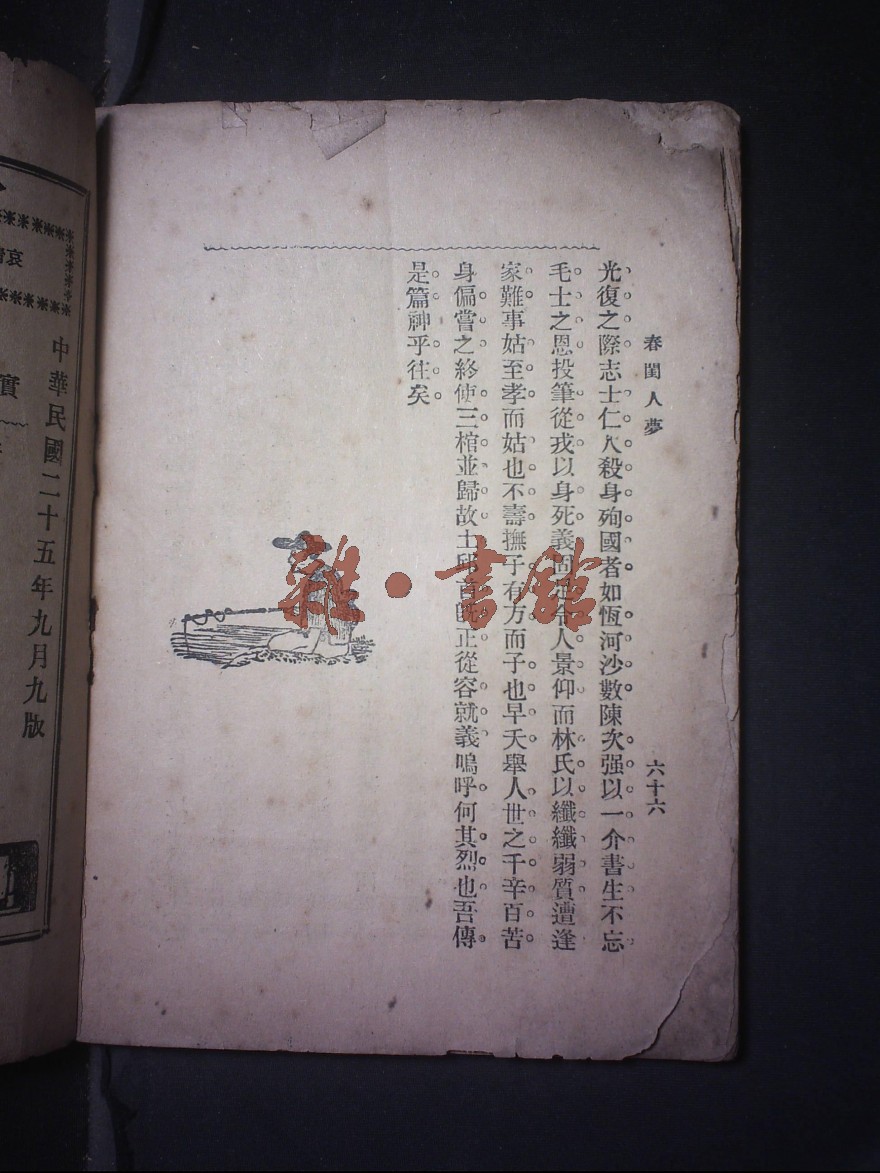 春閨人夢
六十六
光復之際志士仁人殺身殉國者如恆河沙數陳次强以一介書生不忘
毛士之恩投筆從戎以身死義固足令人景仰而林氏以纖纖弱質遭逢
家難事姑至孝而姑也不壽撫子有方而子也早夭舉人世之千辛百苦
身偏嘗之終使三棺並歸故土邱首旣正從容就義嗚呼何其烈也吾傳
是篇神乎往矣
雜·書館
哀
實
中華民國二十五年九月九版